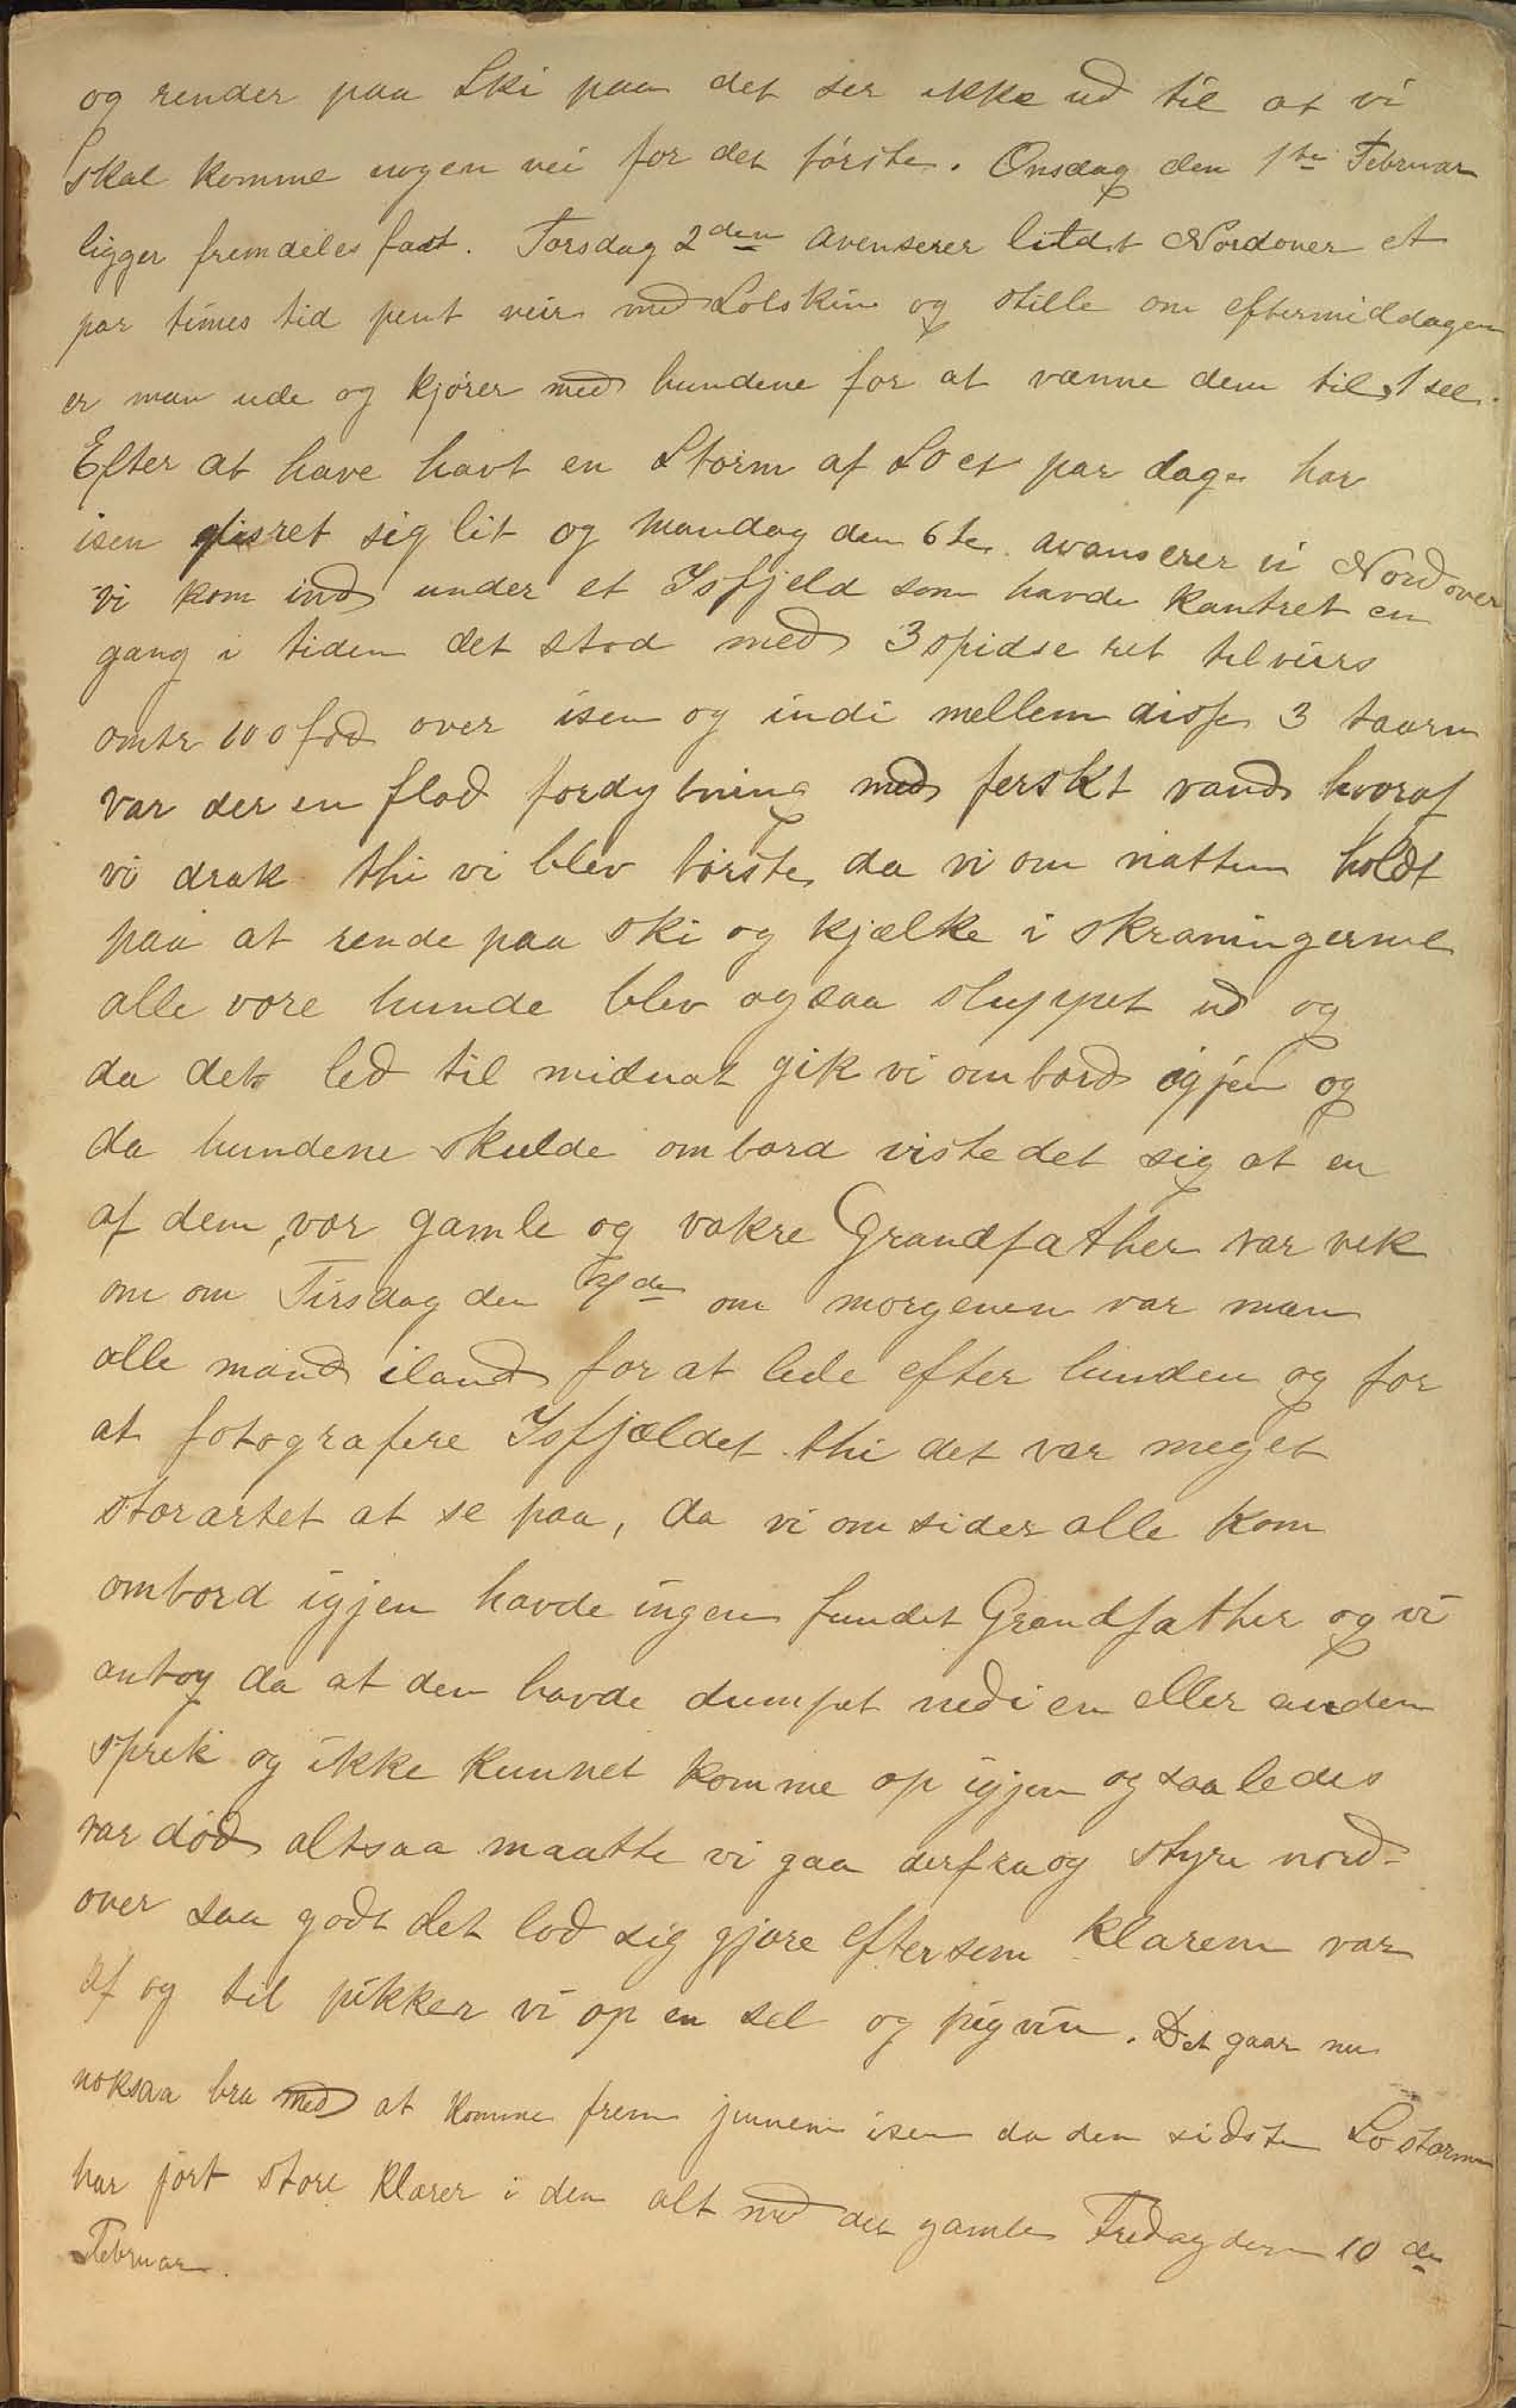 og render paa Ski paa det ser ikke ud til at vi
skal komme nogen vei for det første. Onsdag den 1te Februar
ligger fremdeles fast. Torsdag 2den avenserer litdt Nordover et
par times tid pent veir med Solskin og stille om eftermiddagen
er man ude og kjører med hundene for at vænne dem til sel.
Efter at have havt en Storm af SO et par dage har
isen glisret sig lit og Mandag den 6te avanserer vi Nordover
vi kom ind under et Isfjeld som havde kantret en
gang i tiden det stod med 3 spidse ret tilveirs
omtr 100 fod over isen og indi mellem disse 3 taarn
var der en flod fordybning med ferskt vand hvoraf
vi drak thi vi blev tørste da vi om natten holdt
paa at rende paa ski og kjælke i skraaningerne
alle vore hunde blev ogsaa sluppet ud og
da det led til midnat gik vi ombord igjen og
da hundene skulde ombord viste det sig at en
af dem, vor gamle og vakre Grandfather var vek
om om Tirsdag den 7de om morgenen var man
alle mand iland for at lede efter hunden og for
at fotografere Isfjældet thi det var meget
storartet at se paa, da vi omsider alle kom
ombord igjen havde ingen fundet Grandfather og vi
antog da at den havde dumpet nedi en eller anden
sprek og ikke kunnet komme op igjen og saaledes
var død altsaa maatte vi gaa derfra og styre nord-
over saa godt det lod sig gjøre eftersom klaren var
af og til pikker vi op en sel og pigvin. Det gaar nu
noksaa bra med at komme frem jennem isen da den sidste So storm
har jort store klarer i den alt med det gamle Fredag den 10de
Februar.